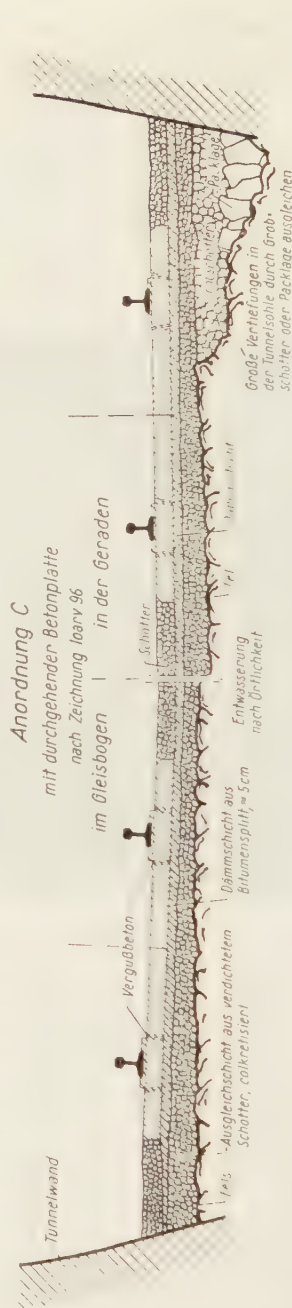 Anordnung C
mit durchgehender Betonplatte
nach Zeichnung Ioarv 96
im Gleisbogen
in der Geraden
Tunnelwand
Vergußbeton
Schotter
Packlage
Fels
Ausgleichschicht aus verdichtetem
Schotter, colkretisiert
Dämmschicht aus
Bitumensplitt, ≈ 5cm
Entwässerung
nach Örtlichkeit
Große Vertiefungen in
der Tunnelsohle durch Grob-
schotter oder Packlage ausgleichen